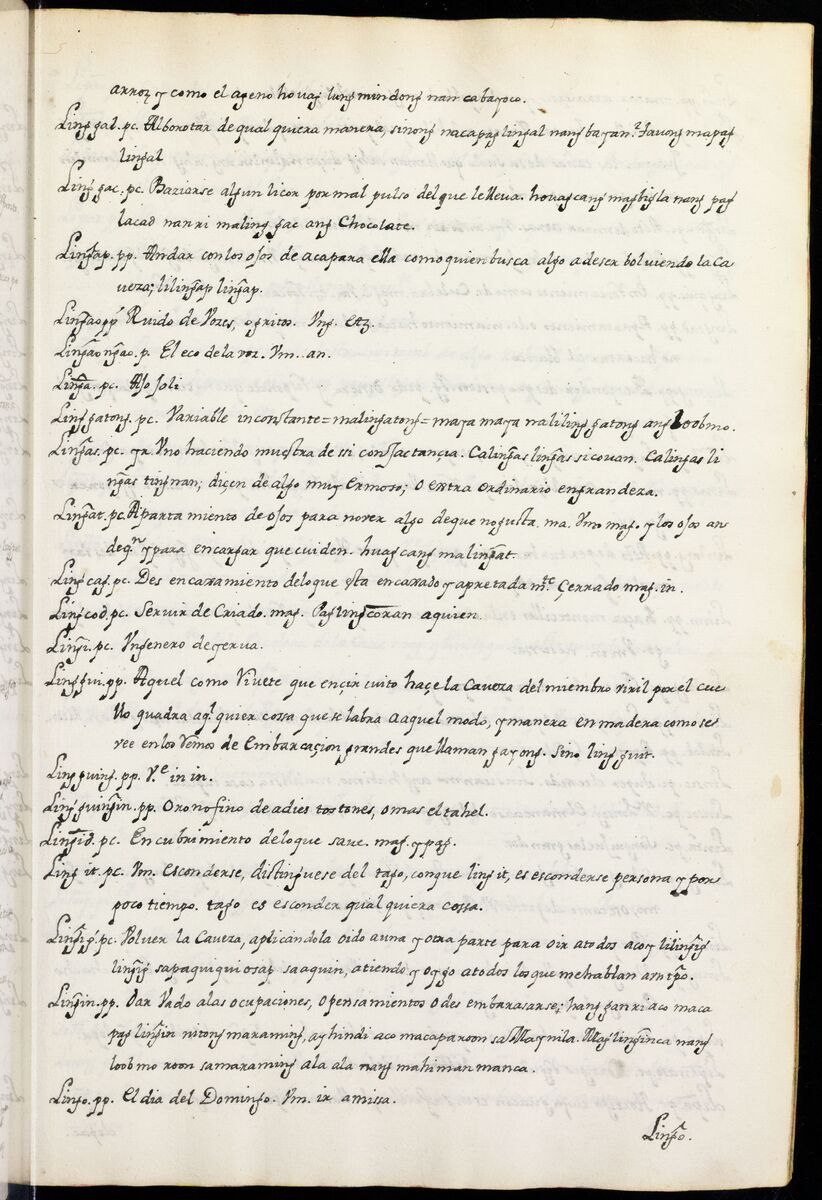 arroz y como el ageno houag lung mindong nan cabayoco.
Ling gal. pc. Alborotar de qual quiera manera, sinong nacapag lingal nang bayan? Iauong mapag
lingal
Ling gac. pc. Baziarse algun licor por mal pulso del que le lleva. houag cang magbigla nang pag
lacad nan ri maling gac ang Chocolate.
Ling̃ap. pp. Andar con los ojos de aca para ella como quien busca algo a deser bolviendo la Ca
ueza; lilingap lingap.
Ling̃ao pp. Ruido de Vozes, o gritos. Vng. Etz.
Ling̃ao ng̃ao. p. El eco de la voz. Vm. an.
Ling̃a. pc. Ajo joli
Ling gatong. pc. Variable inconstante = malingatong = maya maya naliling gatong ang loobmo.
Ling̃as. pc. yr. Vno haciendo muestra de si con jactançia. Caling̃as ling̃as si couan. Calingas li
ng̃as tingnan; diçen de algo muy Ermoso; o extra ordinario en grandeza.
Ling̃at. pc. Aparta miento de ojos para no ver algo de que no gusta. ma. Vmo mag. y los ojos an
de qn y para encargar que cuiden. huag cang maling̃at.
Ling cag. pc. Des encaxamiento de lo que esta encaxado y apretada mte Çerrado mag. in.
Ling cod. pc. Seruir de Criado. mag. Pag lingcoran a quien.
Ling̃i. pc. Vn genero de yerua.
Ling gui. pp. Aquel como Viuete que en çir cuito haçe la Caueza del miembro viril por el cue
llo quadra aql quier cossa que se labra a aquel modo, y manera en madera como se
vee en los Vemos de Embarcaçion grandes que llaman gayong. Sino ling guit.
Ling guing. pp. Ve in in.
Ling guing̃in. pp. Oro no fino de a dies tostones, o mas el tahel.
Ling̃id. pc. Encubrimiento de lo que saue. mag. y pag.
Ling it. pc. Vm. esconderse, distinguese del tago, con que ling it, es esconderse persona y por
poco tiempo. tago es esconder qual quiera cossa.
Ling̃ig. pc. Voluer la Caueza, aplicándola oido a una y otra parte para oir a todos aco y liling̃ig
ling̃ig sapaquiquiosap sa aquin, atiendo y oygo a todos los que me hablan a un tpo.
Ling̃in. pp. Dar Vado a las ocupaciones, o pensamientos o des embarasarse; hang gan ri aco maca
pag ling̃in nitong maraming, ay hindi aco macaparoon sa Maynila. Mag ling̃in ca nang
loob mo roon sa maraming ala ala nang mahiman manca.
Lingo. pp. El dia del Domingo. Vm. ir a missa.
Ling̃o.